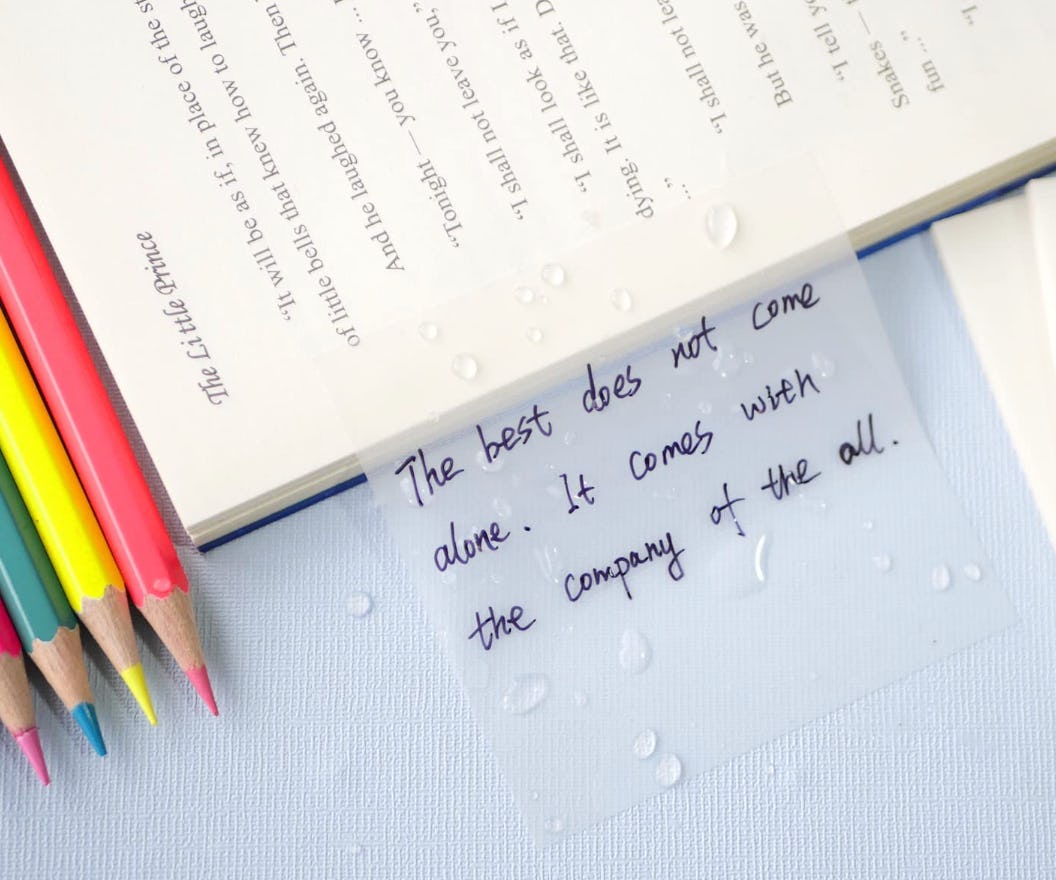 The Little Prince
"It will be as if, in place of the
of little bells that knew how to
And he laughed again. Then
"Tonight — you know ...
"I shall not leave you,"
"I shall look as if I
dying. It is like that.
..."
"I shall not
But he was
"I tell
Snakes —
fun ..."
"I
The best does not come
alone. It comes with
the company of the all.